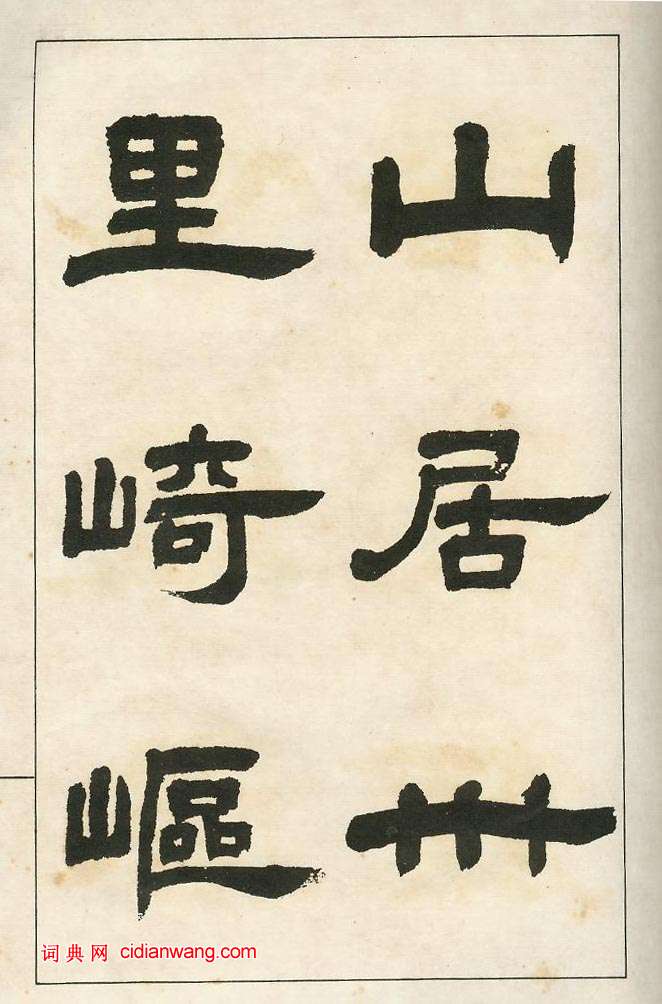 山居卅
里崎嶇
词典网 cidianwang.com